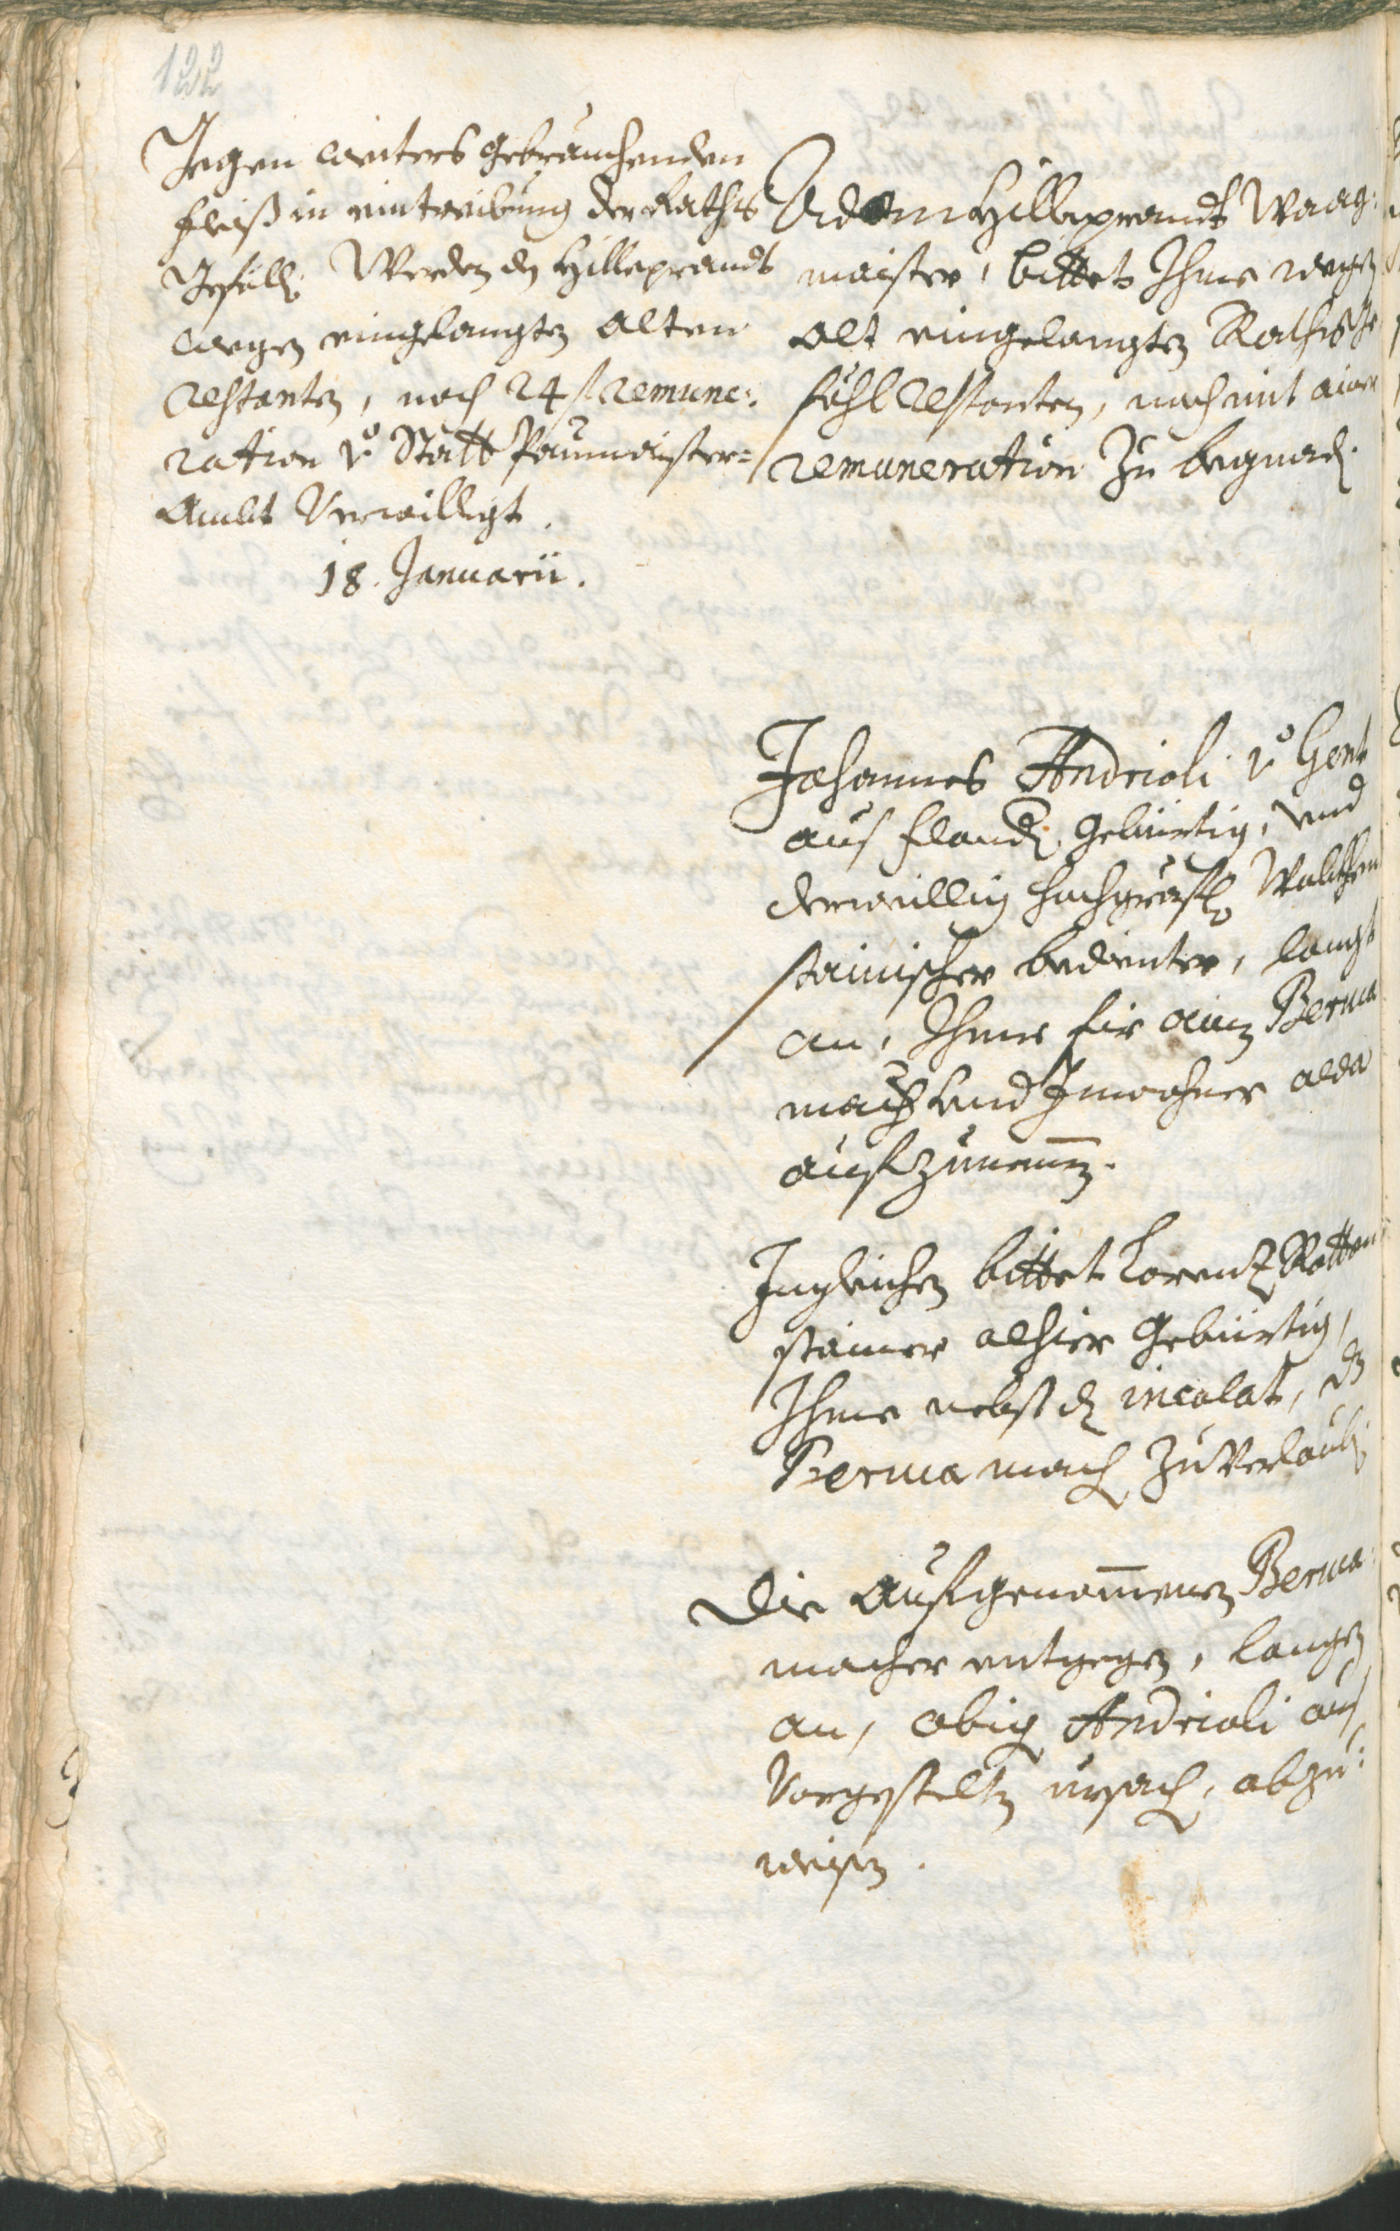 122
Gegen weiters gebrauchenden
fleiß in eintreibung der Raths
Gefäll: Werden dem Hilleprandt
wegen eingelangten alten
restanten, noch 24 f remune:
ration vo Statt Paumaister=
Ambt Verwilligt.
18. Januarii.
Adam Hilleprandt Waag:
maister, bittet Ihme wegen
alt eingelangten Raths ge
föhl restanten, noch mit ainer
remuneration Zu begnad.
Johannes Andrioli vo Gent
aus fland. gebürtig, und
derweillig hochgräfl. Walckhen
stainischer bedienter, langt
an, Ihme für ainen Beruca
macher und Inwohner alda
aufzunemen.
Ingleichen bittet Lorenz Rotten
stainer alhier gebürtig,
Ihme nebst dem incolat, das
Beruca mach. Zu Verlaub.
Die aufgenomenen Beruca:
macher entgegen, langen
an, obig Andrioli aus
Vorgestelten ursach, abzu:
weisen.